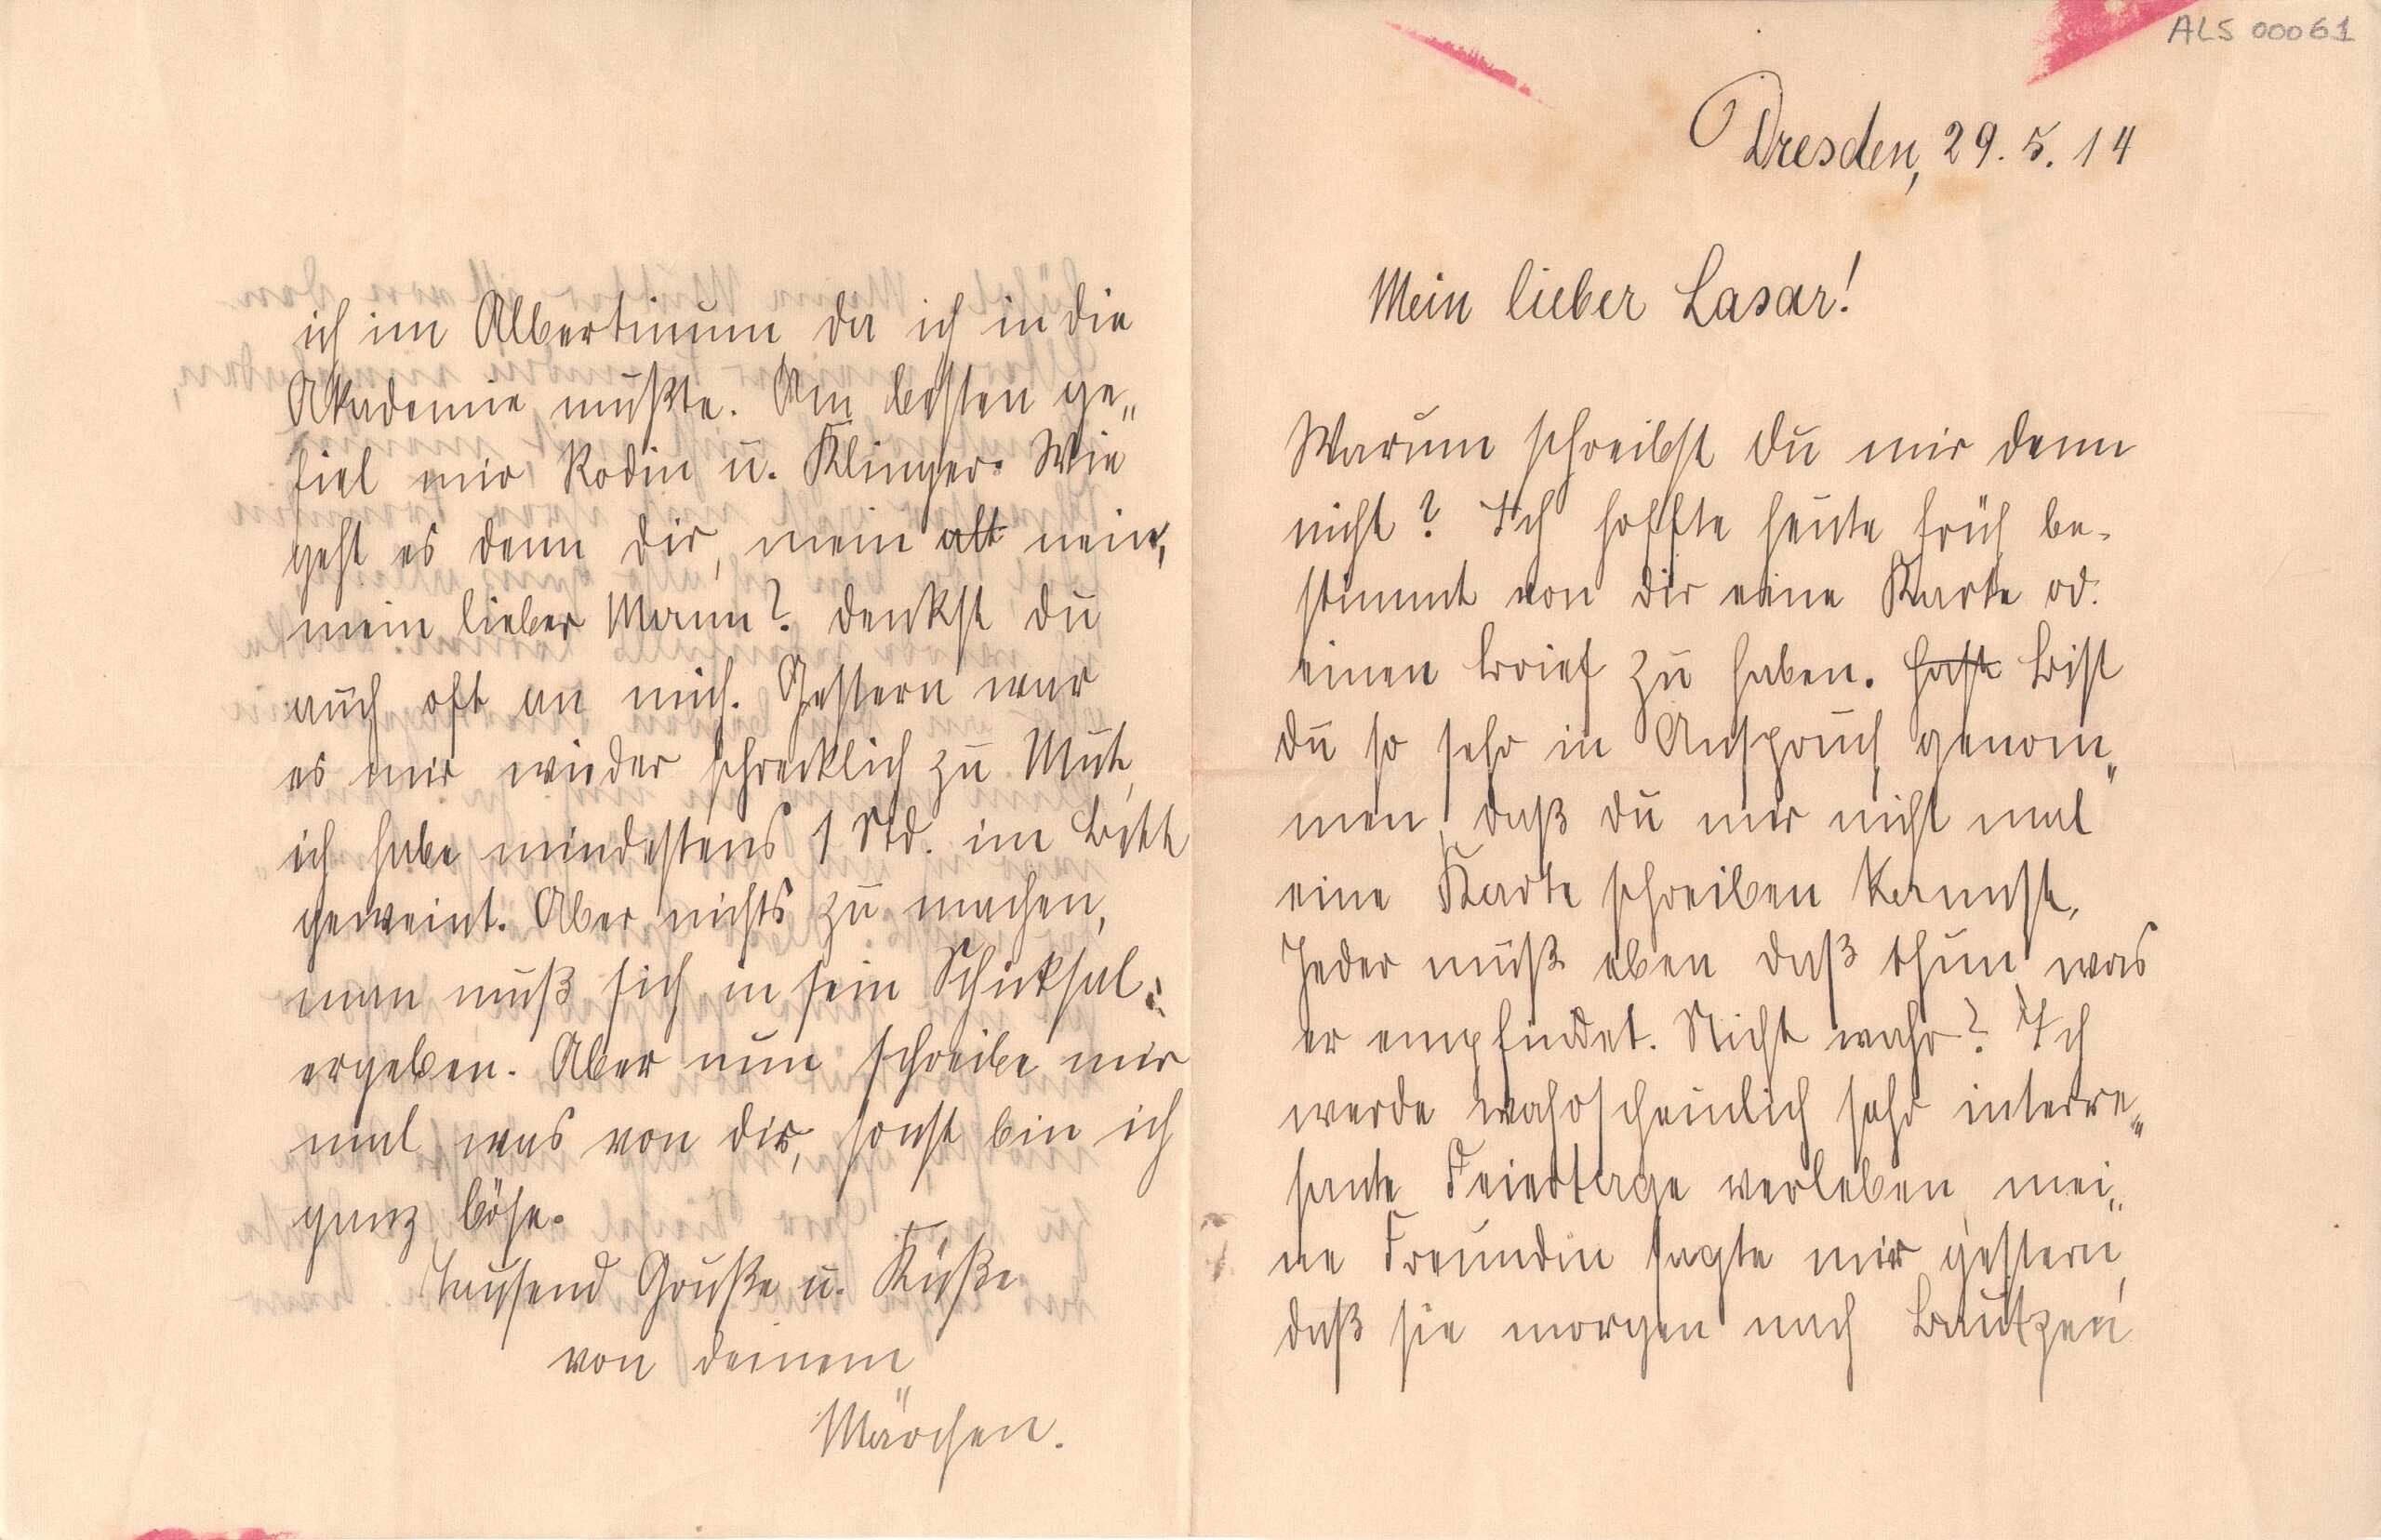 ALS 00061
Dresden, 29. 5. 14
Mein lieber Lasar!
Warum schreibst du mir denn
nicht? Ich hoffte heute früh be-
stimmt von dir eine Karte od.
einen Brief zu haben. Hast Bist
du so sehr in Anspruch genom„
men, daß du mir nicht mal
eine Karte schreiben kannst,
Jeder muß eben daß thun was
er empfindet. Nicht wahr? Ich
werde wahrscheinlich sehr interre„
sante Feiertage verleben, mei„
ne Freundin sagte mir gestern,
daß sie morgen nach Bautzen
ich im Albertinum da ich in die
Akademie mußte. Am besten ge„
fiel mir Rodin u. Klinger. Wie
geht es denn dir, mein alt nein,
mein lieber Mann? denkst du
auch oft an mich. Gestern war
es mir wieder schrecklich zu Mute,
ich habe mindestens 1 Std. im Bett
geweint. Aber nichts zu machen,
man muß sich in sein Schicksal
ergeben. Aber nun schreibe mir
mal was von dir, sonst bin ich
ganz böse.
Tausend Grüße u. Küße
von deinem
Märchen.